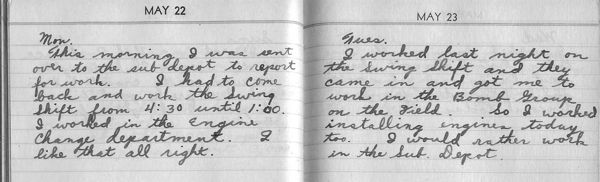 MAY 22
Mon.
This morning I was sent
over to the sub depot to report
for work. I had to come
back and work the Swing
Shift from 4:30 until 1:00.
I worked in the Engine
Change department. I
like that all right.
MAY 23
Tues.
I worked last night on
the Swing Shift and they
came in and got me to
work in the Bomb Group
on the Field. So I worked
installing engines today
too. I would rather work
in the Sub. Depot.